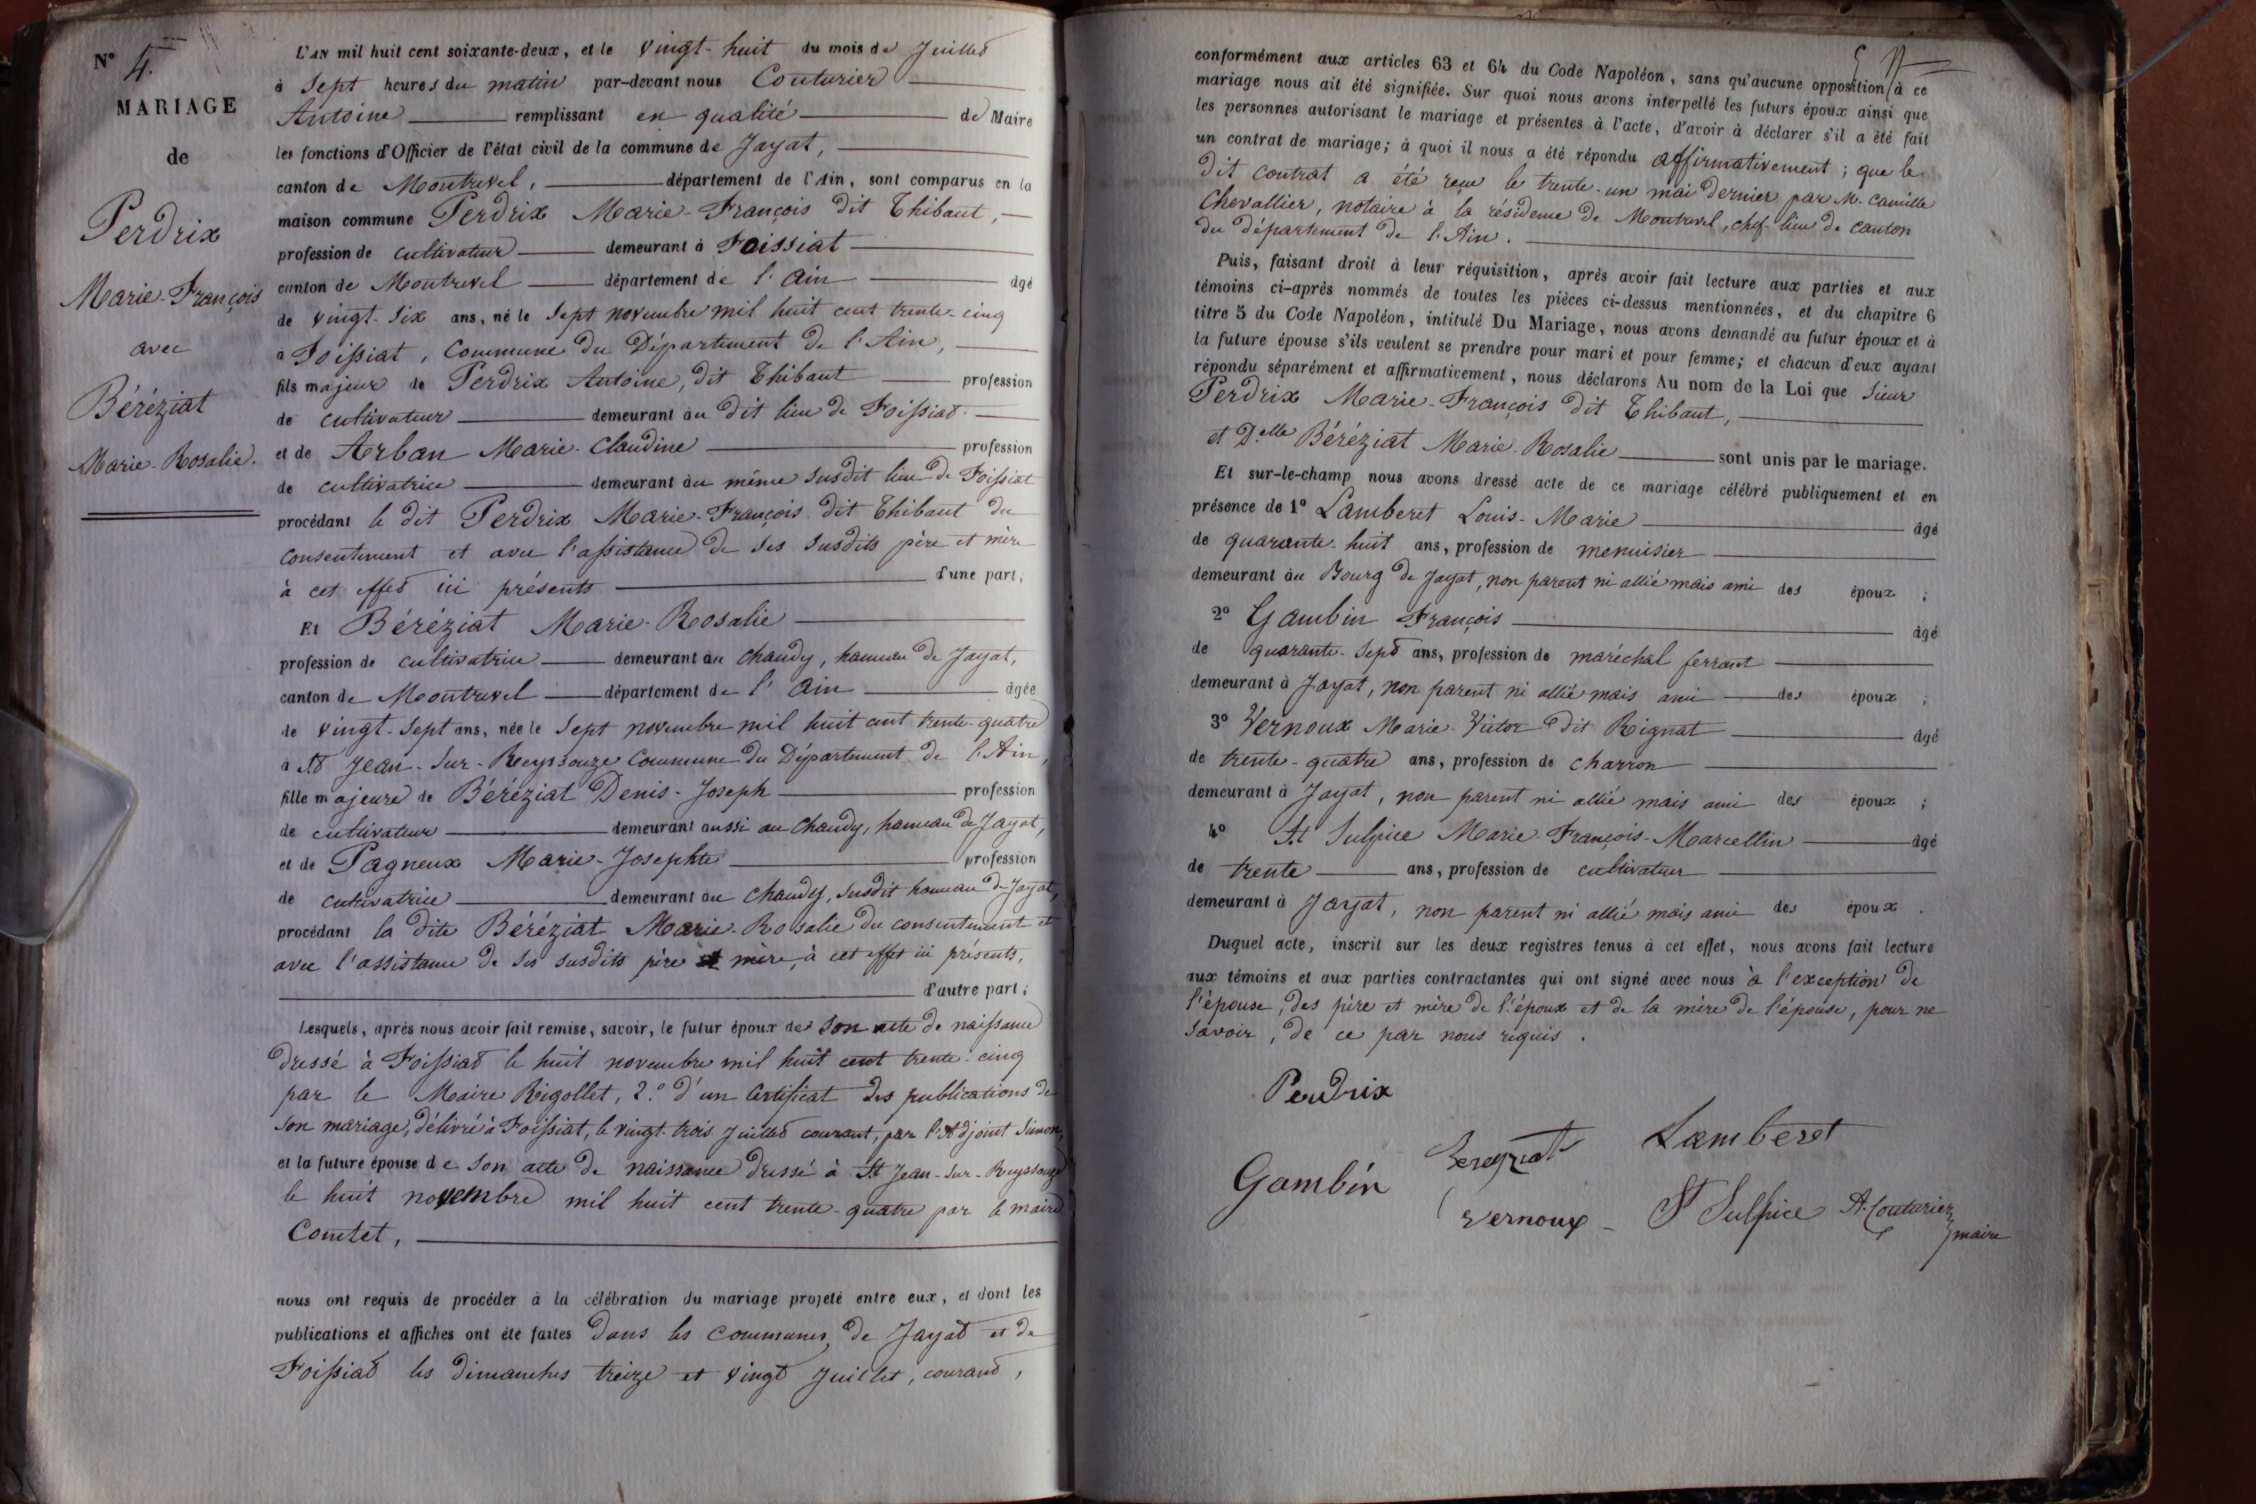 N° 4.
MARIAGE
de
Perdrix
Marie-François
avec
Béréziat
Marie-Rosalie.
L'AN mil huit cent soixante-deux, et le vingt-huit du mois de Juillet
à Sept heures du matin par-devant nous Couturier
Antoine remplissant en qualité de Maire
les fonctions d'Officier de l'état civil de la commune de Jayat,
canton de Montrevel, département de l'Ain, sont comparus en la
maison commune Perdrix Marie-François dit Thibaut,
profession de cultivateur demeurant à Foissiat
canton de Montrevel département de l'Ain âgé
de vingt-six ans, né le sept novembre mil huit cent trente-cinq
à Foissiat, Commune du Département de l'Ain,
fils majeur de Perdrix Antoine, dit Thibaut profession
de cultivateur demeurant au dit lieu de Foissiat.
et de Arban Marie-Claudine profession
de cultivatrice demeurant au même susdit lieu de Foissiat
procédant le dit Perdrix Marie-François dit Thibaut du
consentement et avec l'assistance de ses susdits père et mère
à cet effet ici présents d'une part;
Et Béréziat Marie-Rosalie
profession de cultivatrice demeurant au Chaudy, hameau de Jayat,
canton de Montrevel département de l'Ain âgée
de vingt-sept ans, née le sept novembre mil huit cent trente-quatre
à St Jean-sur-Reyssouze Commune du Département de l'Ain,
fille majeure de Béréziat Denis-Joseph profession
de cultivateur demeurant aussi au Chaudy, hameau de Jayat,
et de Pagneux Marie-Josephte profession
de cultivatrice demeurant au Chaudy, susdit hameau de Jayat,
procédant la dite Béréziat Marie-Rosalie du consentement et
avec l'assistance de ses susdits père et mère, à cet effet ici présents,
d'autre part;
Lesquels, après nous avoir fait remise, savoir, le futur époux de son acte de naissance
dressé à Foissiat le huit novembre mil huit cent trente-cinq
par le Maire Rigollet, 2.° d'un Certificat des publications de
son mariage, délivré à Foissiat, le vingt-trois Juillet courant, par l'Adjoint Simon,
et la future épouse de son acte de naissance dressé à St Jean-sur-Reyssouze
le huit novembre mil huit cent trente-quatre par le maire
Comtet,
nous ont requis de procéder à la célébration du mariage projeté entre eux, et dont les
publications et affiches ont été faites dans les communes de Jayat et de
Foissiat les dimanches treize et vingt Juillet, courant,
conformément aux articles 63 et 64 du Code Napoléon, sans qu'aucune opposition à ce
mariage nous ait été signifiée. Sur quoi nous avons interpellé les futurs époux ainsi que
les personnes autorisant le mariage et présentes à l'acte, d'avoir à déclarer s'il a été fait
un contrat de mariage; à quoi il nous a été répondu affirmativement; que le
dit contrat a été reçu le trente-un mai dernier par M. Camille
Chevallier, notaire à la résidence de Montrevel, chef-lieu de canton
du département de l'Ain.
Puis, faisant droit à leur réquisition, après avoir fait lecture aux parties et aux
témoins ci-après nommés de toutes les pièces ci-dessus mentionnées, et du chapitre 6
titre 5 du Code Napoléon, intitulé Du Mariage, nous avons demandé au futur époux et à
la future épouse s'ils veulent se prendre pour mari et pour femme; et chacun d'eux ayant
répondu séparément et affirmativement, nous déclarons Au nom de la Loi que Sieur
Perdrix Marie-François dit Thibaut,
et Delle Béréziat Marie-Rosalie sont unis par le mariage.
Et sur-le-champ nous avons dressé acte de ce mariage célébré publiquement et en
présence de 1° Lamberet Louis-Marie âgé
de quarante-huit ans, profession de menuisier
demeurant au Bourg de Jayat, non parent ni allié mais ami des époux;
2° Gambin François âgé
de quarante-sept ans, profession de maréchal ferrant
demeurant à Jayat, non parent ni allié mais ami des époux;
3° Vernoux Marie-Victor dit Rignat âgé
de trente-quatre ans, profession de charron
demeurant à Jayat, non parent ni allié mais ami des époux;
4° St Sulpice Marie-François-Marcellin âgé
de trente ans, profession de cultivateur
demeurant à Jayat, non parent ni allié mais ami des époux.
Duquel acte, inscrit sur les deux registres tenus à cet effet, nous avons fait lecture
aux témoins et aux parties contractantes qui ont signé avec nous à l'exception de
l'épouse, des père et mère de l'époux et de la mère de l'épouse, pour ne
savoir, de ce par nous requis.
Perdrix
Bereyziat Lamberet
Gambin
Vernoux St Sulpice A. Couturier
maire